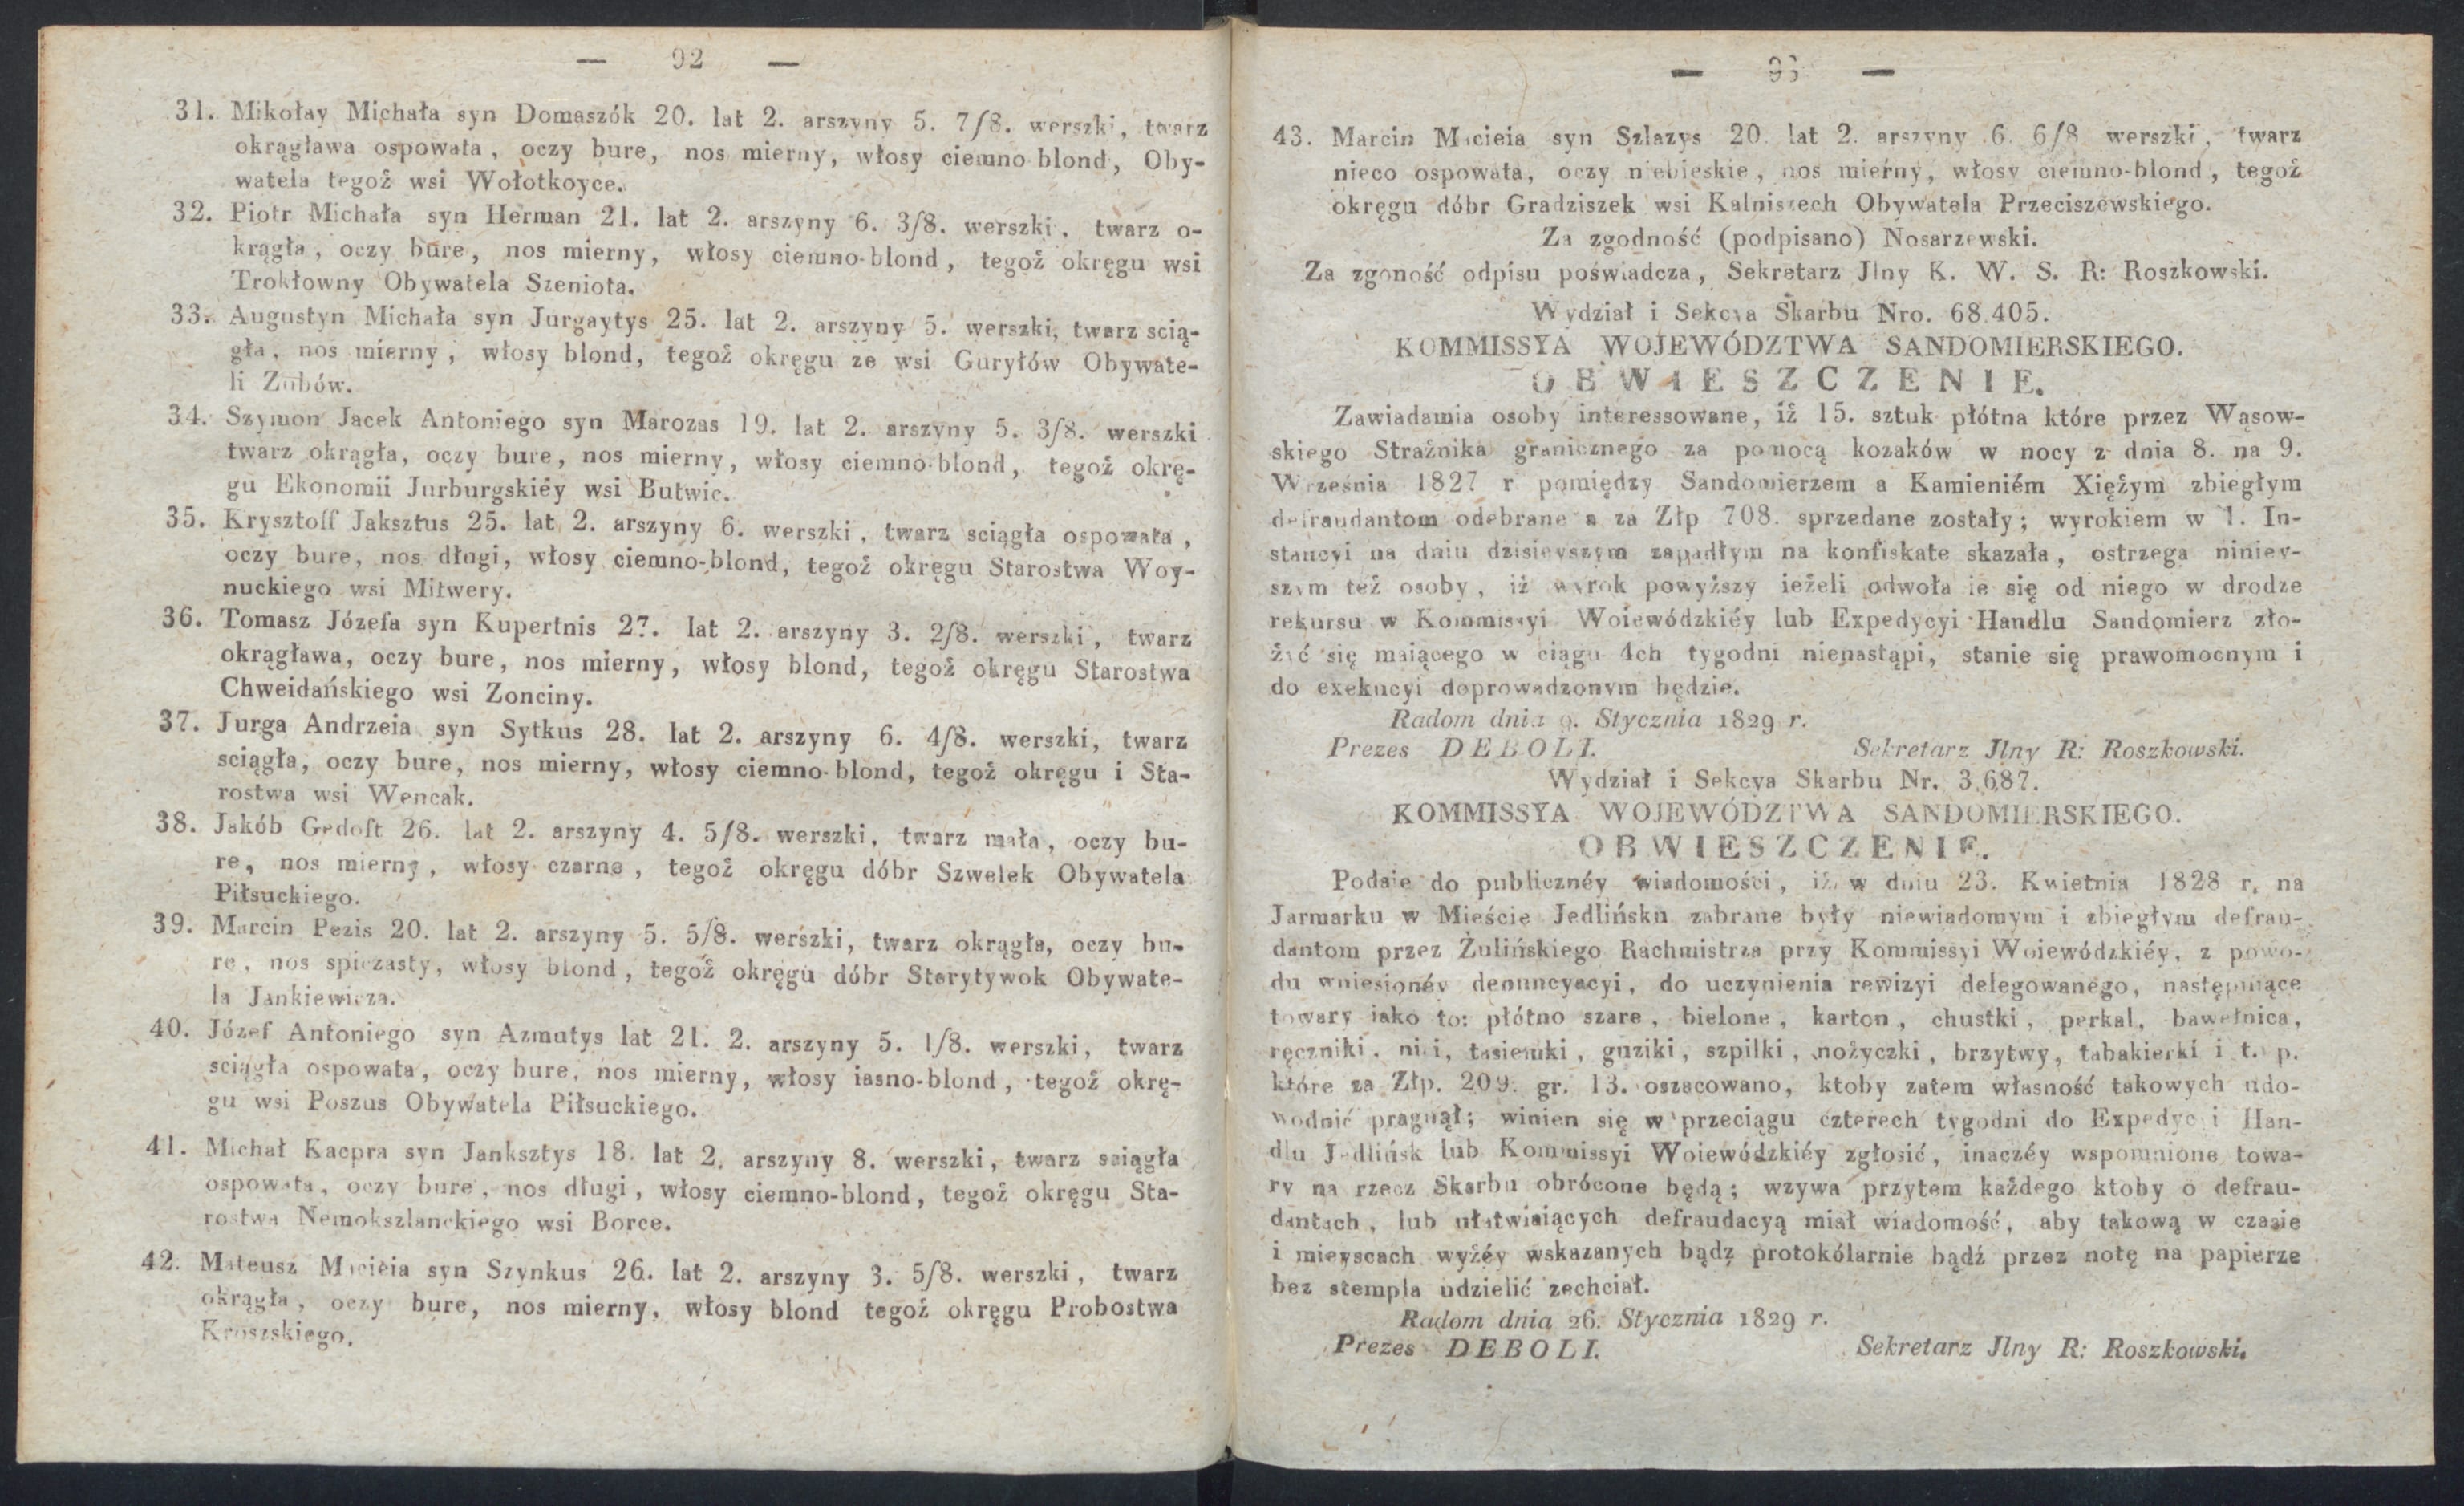 — 92 —
31. Mikołay Michała syn Domaszók 20. lat 2. arszyny 5. 7/8. werszki, twarz
okrągława ospowata, oczy bure, nos mierny, włosy ciemno blond, Oby-
watela tegoż wsi Wołotkoyce.
32. Piotr Michała syn Herman 21. lat 2. arszyny 6. 3/8. werszki, twarz o-
krągła, oczy bure, nos mierny, włosy ciemno-blond, tegoż okręgu wsi
Trokłowny Obywatela Szeniota.
33. Augustyn Michała syn Jurgaytys 25. lat 2. arszyny 5. werszki, twarz scią-
gła, nos mierny, włosy blond, tegoż okręgu ze wsi Guryłów Obywate-
li Zubów.
34. Szymon Jacek Antoniego syn Marozas 19. lat 2. arszyny 5. 3/8. werszki
twarz okrągła, oczy bure, nos mierny, włosy ciemno-blond, tegoż okrę-
gu Ekonomii Jurburgskiéy wsi Butwic.
35. Krysztoff Jaksztus 25. lat 2. arszyny 6. werszki, twarz sciągła ospowata,
oczy bure, nos długi, włosy ciemno-blond, tegoż okręgu Starostwa Woy-
nuckiego wsi Mitwery.
36. Tomasz Józefa syn Kupertnis 27. lat 2. arszyny 3. 2/8. werszki, twarz
okrągława, oczy bure, nos mierny, włosy blond, tegoż okręgu Starostwa
Chweidańskiego wsi Zonciny.
37. Jurga Andrzeia syn Sytkus 28. lat 2. arszyny 6. 4/8. werszki, twarz
sciągła, oczy bure, nos mierny, włosy ciemno-blond, tegoż okręgu i Sta-
rostwa wsi Wencak.
38. Jakób Gedoft 26. lat 2. arszyny 4. 5/8. werszki, twarz mała, oczy bu-
re, nos mierny, włosy czarne, tegoż okręgu dóbr Szwelek Obywatela
Piłsuckiego.
39. Marcin Pezis 20. lat 2. arszyny 5. 5/8. werszki, twarz okrągła, oczy bu-
re, nos spiczasty, włosy blond, tegoż okręgu dóbr Starytywok Obywate-
la Jankiewicza.
40. Józef Antoniego syn Azmutys lat 21. 2. arszyny 5. 1/8. werszki, twarz
sciągła ospowata, oczy bure, nos mierny, włosy iasno-blond, tegoż okrę-
gu wsi Poszus Obywatela Piłsuckiego.
41. Michał Kacpra syn Janksztys 18. lat 2. arszyny 8. werszki, twarz sciągła
ospowata, oczy bure, nos długi, włosy ciemno-blond, tegoż okręgu Sta-
rostwa Nemokszlanckiego wsi Borce.
42. Mateusz Macieia syn Szynkus 26. lat 2. arszyny 3. 5/8. werszki, twarz
okrągła, oczy bure, nos mierny, włosy blond tegoż okręgu Probostwa
Kroszskiego.
— 93 —
43. Marcin Macieia syn Szlazys 20. lat 2. arszyny 6. 6/8 werszki, twarz
nieco ospowata, oczy niebieskie, nos mierny, włosy ciemno-blond, tegoż
okręgu dóbr Gradziszek wsi Kalniszech Obywatela Przeciszewskiego.
Za zgodność (podpisano) Nosarzewski.
Za zgoność odpisu poświadcza, Sekretarz Jlny K. W. S. R: Roszkowski.
Wydział i Sekcya Skarbu Nro. 68.405.
KOMMISSYA WOJEWÓDZTWA SANDOMIERSKIEGO.
OBWIESZCZENIE.
Zawiadamia osoby interessowane, iż 15. sztuk płótna które przez Wąsow-
skiego Strażnika granicznego za pomocą kozaków w nocy z dnia 8. na 9.
Września 1827 r pomiędzy Sandomierzem a Kamieniém Xiężym zbiegłym
defraudantom odebrane a za Złp 708. sprzedane zostały; wyrokiem w 1. In-
stancyi na dniu dzisieyszym zapadłym na konfiskate skazała, ostrzega niniey-
szym też osoby, iż wyrok powyższy ieżeli odwoła ie się od niego w drodze
rekursu w Kommissyi Woiewódzkiéy lub Expedycyi Handlu Sandomierz zło-
żyć się maiącego w ciągu 4ch tygodni nienastąpi, stanie się prawomocnym i
do exekucyi doprowadzonym będzie.
Radom dnia 9. Stycznia 1829 r.
Prezes DEBOLI. Sekretarz Jlny R: Roszkowski.
Wydział i Sekcya Skarbu Nr. 3,687.
KOMMISSYA WOJEWÓDZTWA SANDOMIERSKIEGO.
OBWIESZCZENIE.
Podaie do publicznéy wiadomości, iż w dniu 23. Kwietnia 1828 r. na
Jarmarku w Mieście Jedlińsku zabrane były niewiadomym i zbiegłym defrau-
dantom przez Żulińskiego Rachmistrza przy Kommissyi Woiewódzkiéy, z powo-
du wniesionéy denuncyacyi, do uczynienia rewizyi delegowanego, następuiące
towary iako to: płótno szare, bielone, karton, chustki, perkal, bawełnica,
ręczniki, nici, tasiemki, guziki, szpilki, nożyczki, brzytwy, tabakierki i t. p.
które za Złp. 209. gr. 13. oszacowano, ktoby zatem własność takowych udo-
wodnić pragnął; winien się w przeciągu czterech tygodni do Expedycyi Han-
dlu Jedlińsk lub Kommissyi Woiewódzkiéy zgłosić, inaczéy wspomnione towa-
ry na rzecz Skarbu obrócone będą; wzywa przytem każdego ktoby o defrau-
dantach, lub ułatwiaiących defraudacyą miał wiadomość, aby takową w czasie
i mieyscach wyżéy wskazanych bądz protokólarnie bądź przez notę na papierze
bez stempla udzielić zechciał.
Radom dnia 26. Stycznia 1829 r.
Prezes DEBOLI. Sekretarz Jlny R: Roszkowski.